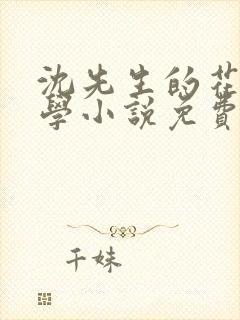 沈先生的花
學小說免費
千妹